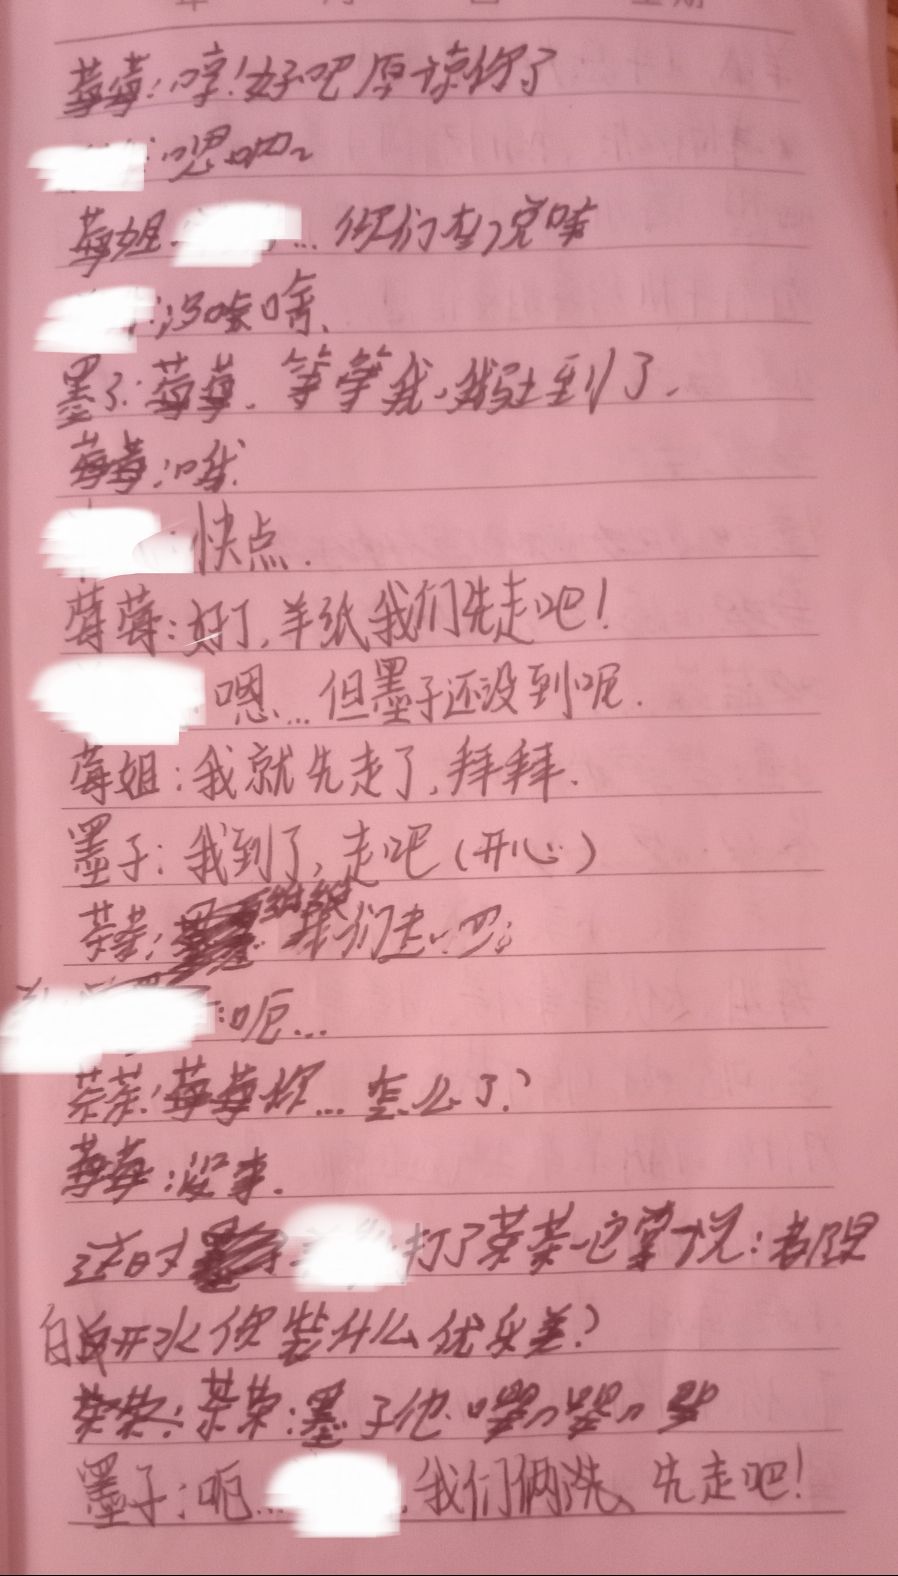 莓莓:哼!好吧原谅你了
:嗯呐~
莓姐 ... 你们在说啥
:没啥啥、
墨子:莓莓.等等我,我马上到了.
莓莓:哦.
:快点.
莓莓:好了,羊纸我们先走吧!
嗯...但墨子还没到呢.
莓姐:我就先走了,拜拜.
墨子:我到了,走吧(开心)
茶茶: 我们走吧
:呃...
茶茶:莓莓你...怎么了?
莓莓:没事.
这时 打了茶茶一巴掌说:老娘
白开水你装什么优乐美?
茶茶:墨子他
墨子:呃... .我们俩洗、先走吧!